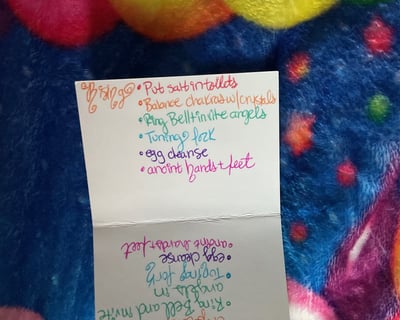 • Put salt in toilets
• Balance chakras w/ crystals
• Ring Bell + invite angels
• Tuning fork
• egg cleanse
• anoint hands + feet
• anoint hands + feet
• egg cleanse
• Tuning fork
angels in
• Ring Bell and invite